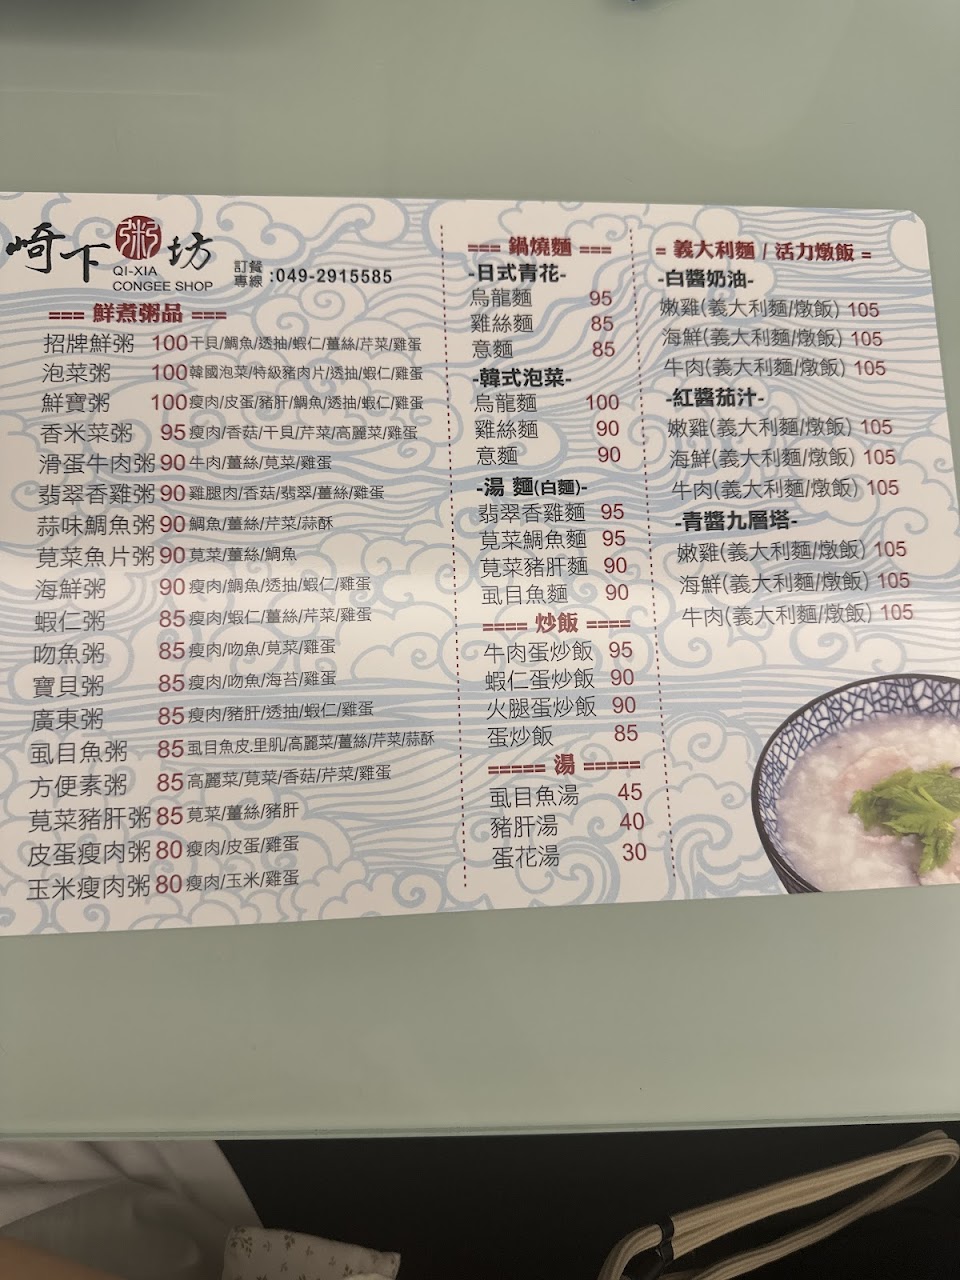 崎下粥坊
QI-XIA
CONGEE SHOP
訂餐專線:049-2915585
=== 鮮煮粥品 ===
招牌鮮粥 100 干貝/鯛魚/透抽/蝦仁/薑絲/芹菜/雞蛋
泡菜粥 100 韓國泡菜/特級豬肉片/透抽/蝦仁/雞蛋
鮮寶粥 100 瘦肉/皮蛋/豬肝/鯛魚/透抽/蝦仁/雞蛋
香米菜粥 95 瘦肉/香菇/干貝/芹菜/高麗菜/雞蛋
滑蛋牛肉粥 90 牛肉/薑絲/莧菜/雞蛋
翡翠香雞粥 90 雞腿肉/香菇/翡翠/薑絲/雞蛋
蒜味鯛魚粥 90 鯛魚/薑絲/芹菜/蒜酥
莧菜魚片粥 90 莧菜/薑絲/鯛魚
海鮮粥 90 瘦肉/鯛魚/透抽/蝦仁/雞蛋
蝦仁粥 85 瘦肉/蝦仁/薑絲/芹菜/雞蛋
吻魚粥 85 瘦肉/吻魚/莧菜/雞蛋
寶貝粥 85 瘦肉/吻魚/海苔/雞蛋
廣東粥 85 瘦肉/豬肝/透抽/蝦仁/雞蛋
虱目魚粥 85 虱目魚皮.里肌/高麗菜/薑絲/芹菜/蒜酥
方便素粥 85 高麗菜/莧菜/香菇/芹菜/雞蛋
莧菜豬肝粥 85 莧菜/薑絲/豬肝
皮蛋瘦肉粥 80 瘦肉/皮蛋/雞蛋
玉米瘦肉粥 80 瘦肉/玉米/雞蛋
=== 鍋燒麵 ===
-日式青花-
烏龍麵 95
雞絲麵 85
意麵 85
-韓式泡菜-
烏龍麵 100
雞絲麵 90
意麵 90
-湯 麵(白麵)-
翡翠香雞麵 95
莧菜鯛魚麵 95
莧菜豬肝麵 90
虱目魚麵 90
==== 炒飯 ====
牛肉蛋炒飯 95
蝦仁蛋炒飯 90
火腿蛋炒飯 90
蛋炒飯 85
===== 湯 =====
虱目魚湯 45
豬肝湯 40
蛋花湯 30
= 義大利麵 / 活力燉飯 =
-白醬奶油-
嫩雞(義大利麵/燉飯) 105
海鮮(義大利麵/燉飯) 105
牛肉(義大利麵/燉飯) 105
-紅醬茄汁-
嫩雞(義大利麵/燉飯) 105
海鮮(義大利麵/燉飯) 105
牛肉(義大利麵/燉飯) 105
-青醬九層塔-
嫩雞(義大利麵/燉飯) 105
海鮮(義大利麵/燉飯) 105
牛肉(義大利麵/燉飯) 105